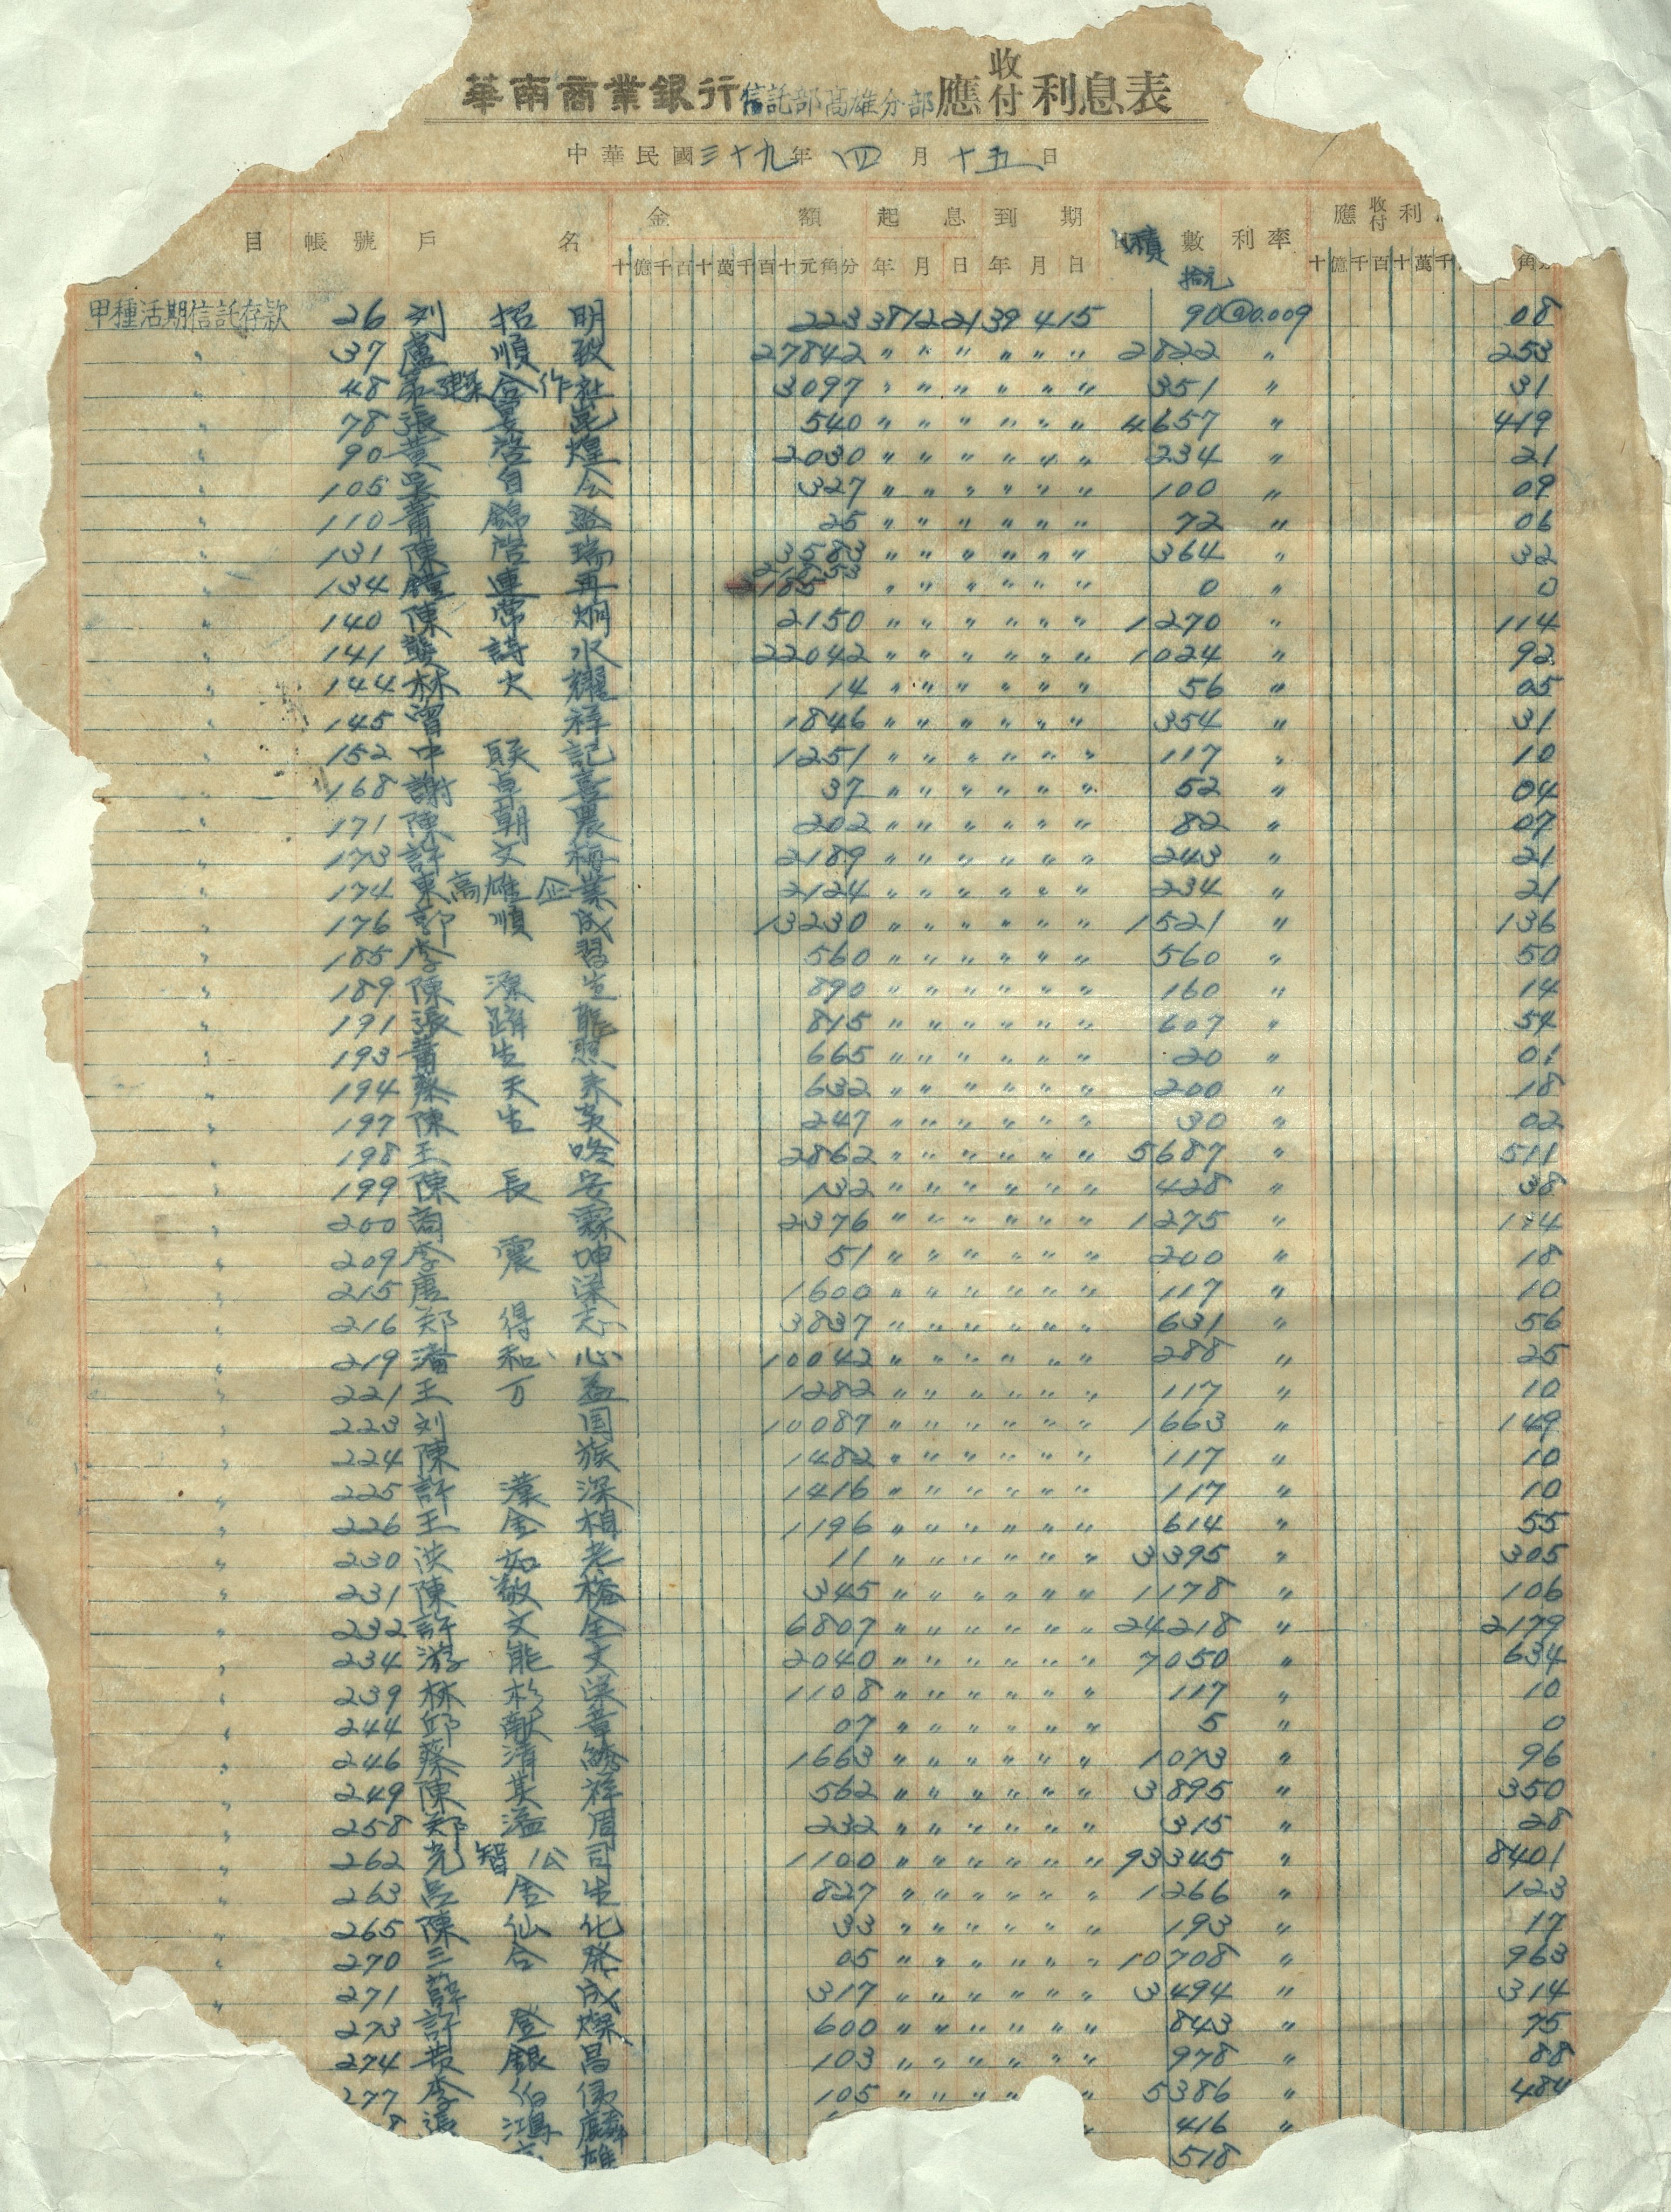 華南商業銀行信託部高雄分部應收付利息表
中華民國三十九年四月十五日
目 帳號 戶名 金額 起息 到期 積數 利率 應收付利
十億千百十萬千百十元角分 年月日 年月日 拾元 十億千百十萬千 角
甲種活期信託存款 26 刘招明 223 38 12 21 39 4 15 90 @0.009 08
〃 37 盧順 27842 〃 〃 〃 〃 〃 〃 2822 〃 253
〃 48 合作社 3097 〃 〃 〃 〃 〃 〃 351 〃 31
〃 78 張 540 〃 〃 〃 〃 〃 〃 4657 〃 419
〃 90 黃 煌 2030 〃 〃 〃 〃 〃 〃 234 〃 21
〃 105 吳自 327 〃 〃 〃 〃 〃 〃 100 〃 09
〃 110 蕭錦 25 〃 〃 〃 〃 〃 〃 72 〃 06
〃 131 陳 瑞 3583 〃 〃 〃 〃 〃 〃 364 〃 32
〃 134 鐘連再 〃 〃 〃 〃 〃 〃 0 〃 0
〃 140 陳常炯 2150 〃 〃 〃 〃 〃 〃 1270 〃 114
〃 141 龔詩水 22042 〃 〃 〃 〃 〃 〃 1024 〃 92
〃 144 林火耀 14 〃 〃 〃 〃 〃 〃 56 〃 05
〃 145 曾祥 1846 〃 〃 〃 〃 〃 〃 354 〃 31
〃 152 中联記 1251 〃 〃 〃 〃 〃 〃 117 〃 10
〃 168 謝卓喜 37 〃 〃 〃 〃 〃 〃 52 〃 04
〃 171 陳朝農 202 〃 〃 〃 〃 〃 〃 82 〃 07
〃 173 許文梅 2189 〃 〃 〃 〃 〃 〃 243 〃 21
〃 174 東高雄企業 2124 〃 〃 〃 〃 〃 〃 234 〃 21
〃 176 郭順成 13230 〃 〃 〃 〃 〃 〃 1521 〃 136
〃 185 李習 560 〃 〃 〃 〃 〃 〃 560 〃 50
〃 189 陳深生 890 〃 〃 〃 〃 〃 〃 160 〃 14
〃 191 張 能 815 〃 〃 〃 〃 〃 〃 607 〃 54
〃 193 蕭生照 665 〃 〃 〃 〃 〃 〃 20 〃 01
〃 194 蔡天来 632 〃 〃 〃 〃 〃 〃 200 〃 18
〃 197 陳生英 247 〃 〃 〃 〃 〃 〃 30 〃 02
〃 198 王 2862 〃 〃 〃 〃 〃 〃 5687 〃 511
〃 199 陳長安 132 〃 〃 〃 〃 〃 〃 428 〃 38
〃 200 商霖 2376 〃 〃 〃 〃 〃 〃 1275 〃 114
〃 209 李震坤 51 〃 〃 〃 〃 〃 〃 200 〃 18
〃 215 唐深 1600 〃 〃 〃 〃 〃 〃 117 〃 10
〃 216 郑得志 3837 〃 〃 〃 〃 〃 〃 631 〃 56
〃 219 潘和心 10042 〃 〃 〃 〃 〃 〃 288 〃 25
〃 221 王万益 1282 〃 〃 〃 〃 〃 〃 117 〃 10
〃 223 刘国 10087 〃 〃 〃 〃 〃 〃 1663 〃 149
〃 224 陳族 1482 〃 〃 〃 〃 〃 〃 117 〃 10
〃 225 許漢深 1416 〃 〃 〃 〃 〃 〃 117 〃 10
〃 226 王金 1196 〃 〃 〃 〃 〃 〃 614 〃 55
〃 230 洪如老 11 〃 〃 〃 〃 〃 〃 3395 〃 305
〃 231 陳敬橋 345 〃 〃 〃 〃 〃 〃 1178 〃 106
〃 232 許文全 6807 〃 〃 〃 〃 〃 〃 24218 〃 2179
〃 234 游能文 2040 〃 〃 〃 〃 〃 〃 7050 〃 634
〃 239 林杉深 1108 〃 〃 〃 〃 〃 〃 117 〃 10
〃 244 邱献章 07 〃 〃 〃 〃 〃 〃 5 〃 0
〃 246 蔡清 1663 〃 〃 〃 〃 〃 〃 1073 〃 96
〃 249 陳其祥 562 〃 〃 〃 〃 〃 〃 3895 〃 350
〃 258 郑溢眉 232 〃 〃 〃 〃 〃 〃 315 〃 28
〃 262 光智公司 1100 〃 〃 〃 〃 〃 〃 93345 〃 8401
〃 263 呂 生 827 〃 〃 〃 〃 〃 〃 1266 〃 123
〃 265 陳仙化 33 〃 〃 〃 〃 〃 〃 193 〃 17
〃 270 三合発 05 〃 〃 〃 〃 〃 〃 10708 〃 963
〃 271 薛成 317 〃 〃 〃 〃 〃 〃 3494 〃 314
273 許登燦 600 〃 〃 〃 〃 〃 〃 843 〃 75
274 黄銀昌 103 〃 〃 〃 〃 〃 〃 978 〃 88
277 李伯 105 〃 〃 〃 〃 5386 〃 484
8 張鴻麟 〃 416
雄 518